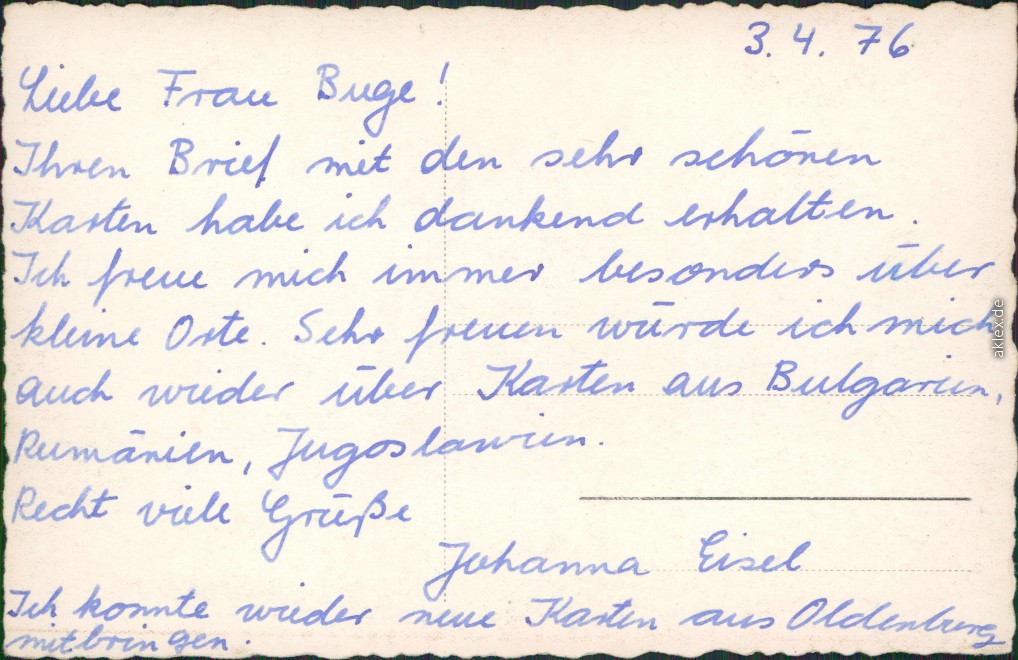 3.4.76
Liebe Frau Buge!
Ihren Brief mit den sehr schönen
Karten habe ich dankend erhalten.
Ich freue mich immer besonders über
kleine Orte. Sehr freuen würde ich mich
auch wieder über Karten aus Bulgarien,
Rumänien, Jugoslawien.
Recht viele Grüße
Johanna Eisel
Ich konnte wieder neue Karten aus Oldenburg
mitbringen.
aklex.de